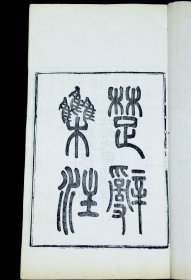 楚辭
集注